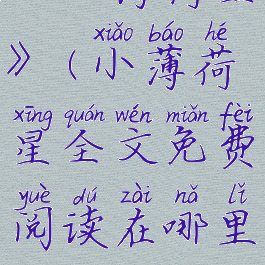 xiǎo báo hé
》(小薄荷
xīng quán wén miǎn fèi
星全文免费
yuè dú zài nǎ lǐ
阅读在哪里